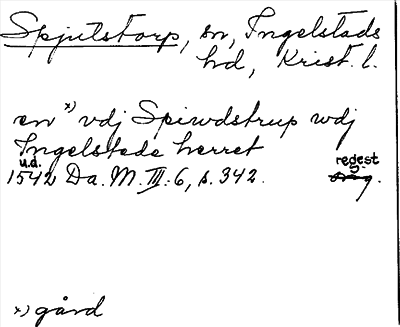 Spjutstorp, sn, Ingelstads
hd, Krist. l.
en x) vdj Spiwdstrup wdj
Ingelstade herret
u.d.
1542 Da. M. III: 6, s. 342.
redest
5
x) gård